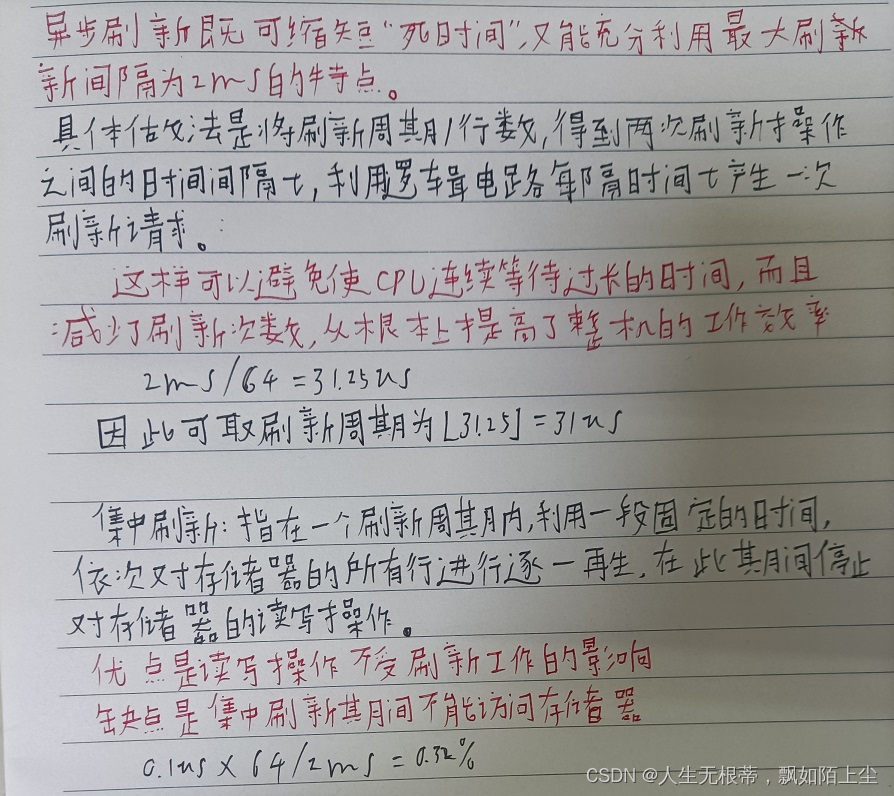 异步刷新既可缩短"死时间",又能充分利用最大刷新
新间隔为2ms的特点。
具体做法是将刷新周期/行数,得到两次刷新操作
之间的时间间隔t,利用逻辑电路每隔时间t产生一次
刷新请求。
这样可以避免使CPU连续等待过长的时间,而且
减少了刷新次数,从根本上提高了整机的工作效率
2ms/64=31.25us
因此可取刷新周期为⌊31.25⌋=31us
集中刷新:指在一个刷新周期内,利用一段固定的时间,
依次对存储器的所有行进行逐一再生,在此期间停止
对存储器的读写操作。
优点是读写操作不受刷新工作的影响
缺点是集中刷新其间不能访问存储器
0.1us×64/2ms=0.32%
CSDN @人生无根蒂,飘如陌上尘